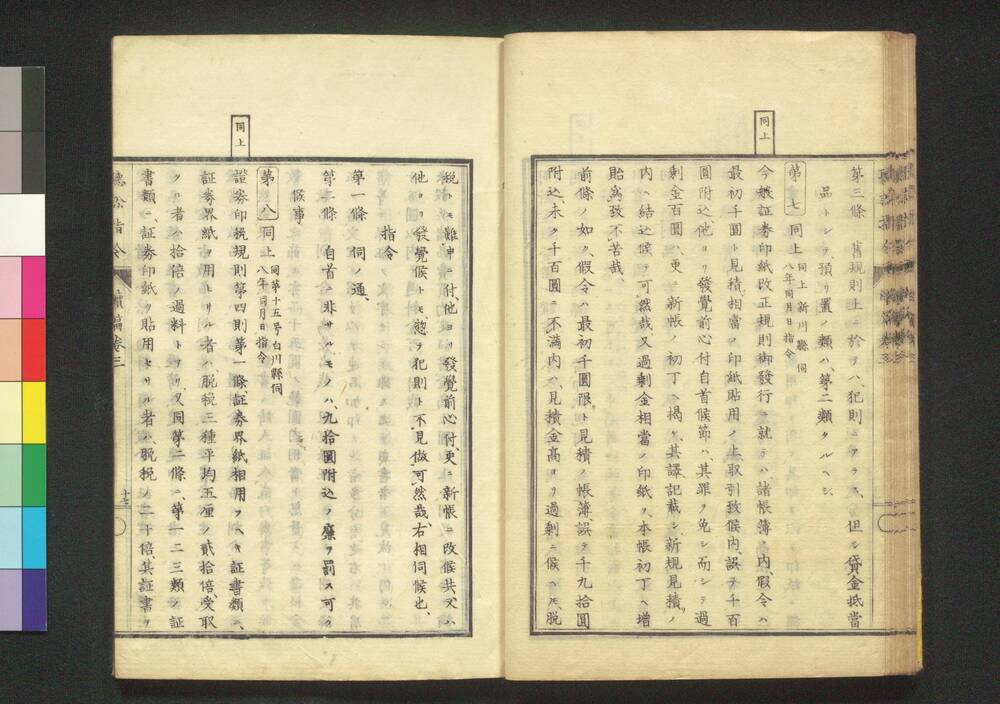 同上
第三條 舊規則上ニ於テハ、犯則ニアラス、但シ貸金抵當
品トシテ預リ置ノ類ハ、第二類タルヘシ、
第七 同上 同上新川縣伺
八年同月日指令
今般証券印紙改正規則御發行ニ就テハ、諸帳簿ノ內、假令ハ
最初千圓ト見積、相當ノ印紙貼用ノ上取引致候內、誤テ千百
圓附込、他ヨリ發覺前心付自首候節ハ、其罪ヲ免シ、而シテ過
剩金百圓ハ、更ニ新帳ノ初丁ヘ揭ケ、其譯記載シ、新規見積ノ
內ヘ結込候テ可然哉、又過剩金相當ノ印紙ヲ、本帳初丁ヘ增
貼爲致不苦哉、
前條ノ如ク、假令ハ最初千圓限ト見積ノ帳簿、誤テ千九拾圓
附込、未タ千百圓ニ不滿內ハ、見積金高ヨリ過剩ニ候ヘモ、脫
同上
稅トモ難申ニ付、他ヨリ發覺前心付、更ニ新帳ニ改候共、又ハ
他ヨリ發覺候トモ、惣テ犯則ト不見做可然哉、右相伺候也、
指令
第一條 伺ノ通、
第二條 自首ニ非サルモノハ、九拾圓附込ノ廉ヲ罰ス可ク
候事
第八 同上 同第十五号白川縣伺
八年同月日指令
證券印稅規則第四則第一條、証券界紙相用フヘキ証書類ニ、
証券界紙ヲ用ヒサル者ハ、脫稅三種平均五厘ノ貳拾倍、受取
タル者ハ拾倍ノ過料トアリ、又同第二條ニ、第一二三類ノ証
書類ニ、証券印紙ヲ貼用セサル者ハ、脫稅ノ二十倍、其証書ヲ
聽訟指令 續編卷三
十七